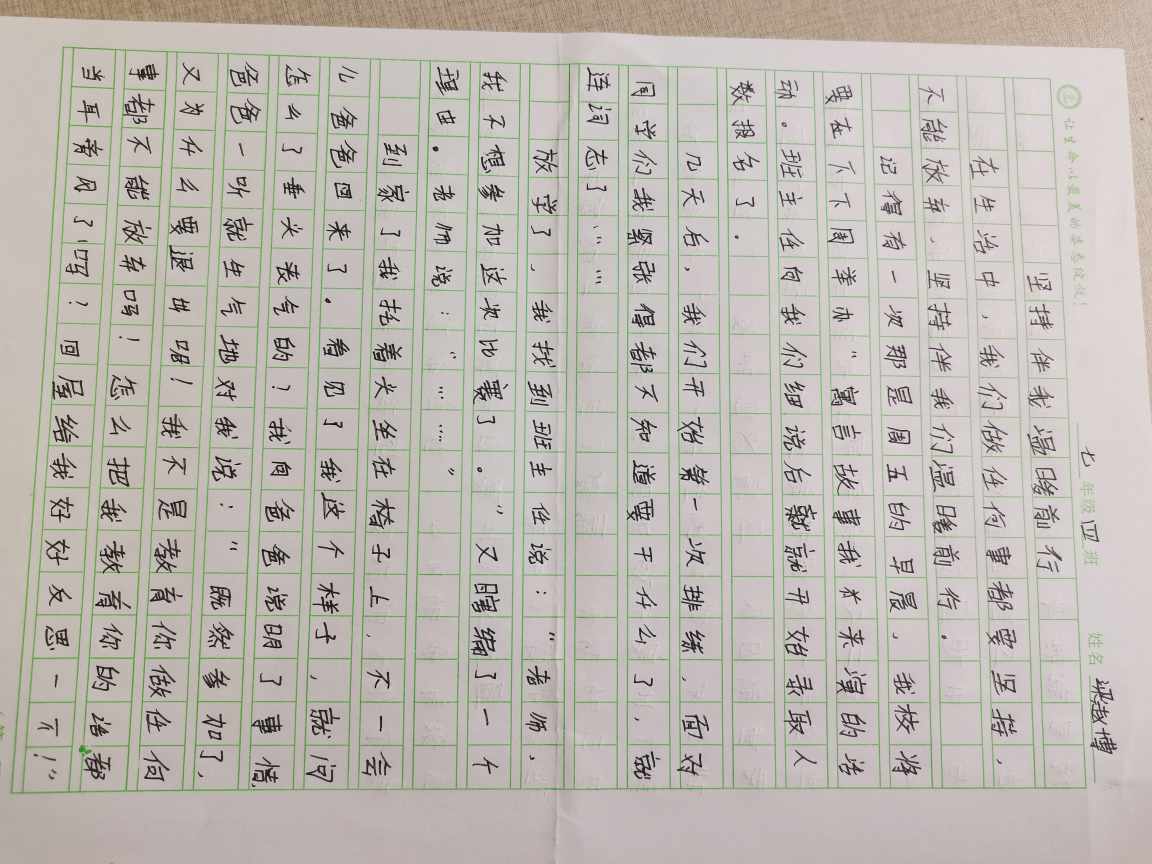 让生命以最美的姿态绽放!
七年级四班 姓名 梁越博
坚持伴我温暖前行
在生活中,我们做任何事都要坚持,
不能放弃、坚持伴我们温暖前行。
记得有一次那是周五的早晨,我校将
要在下下周举办“寓言故事我来演的活
动。班主任向我们细说后就开始录取人
数报名了.
几天后,我们开始第一次排练,面对
同学们我紧张得都不知道要干什么了,就
连词忘了……
放学了,我找到班主任说:“老师,
我不想参加这次比赛了。”又瞎编了一个
理由。老师说:“……”
到家了我托着头坐在椅子上,不一会
儿爸爸回来了。看见了我这个样子,就问
怎么了垂头丧气的?我向爸爸说明了事情
爸爸一听就生气地对我说:“既然参加了,
又为什么要退出呢!我不是教育你做任何
事都不能放弃吗!怎么把我教育你的话都
当耳旁风了吗?回屋给我好好反思一下!”